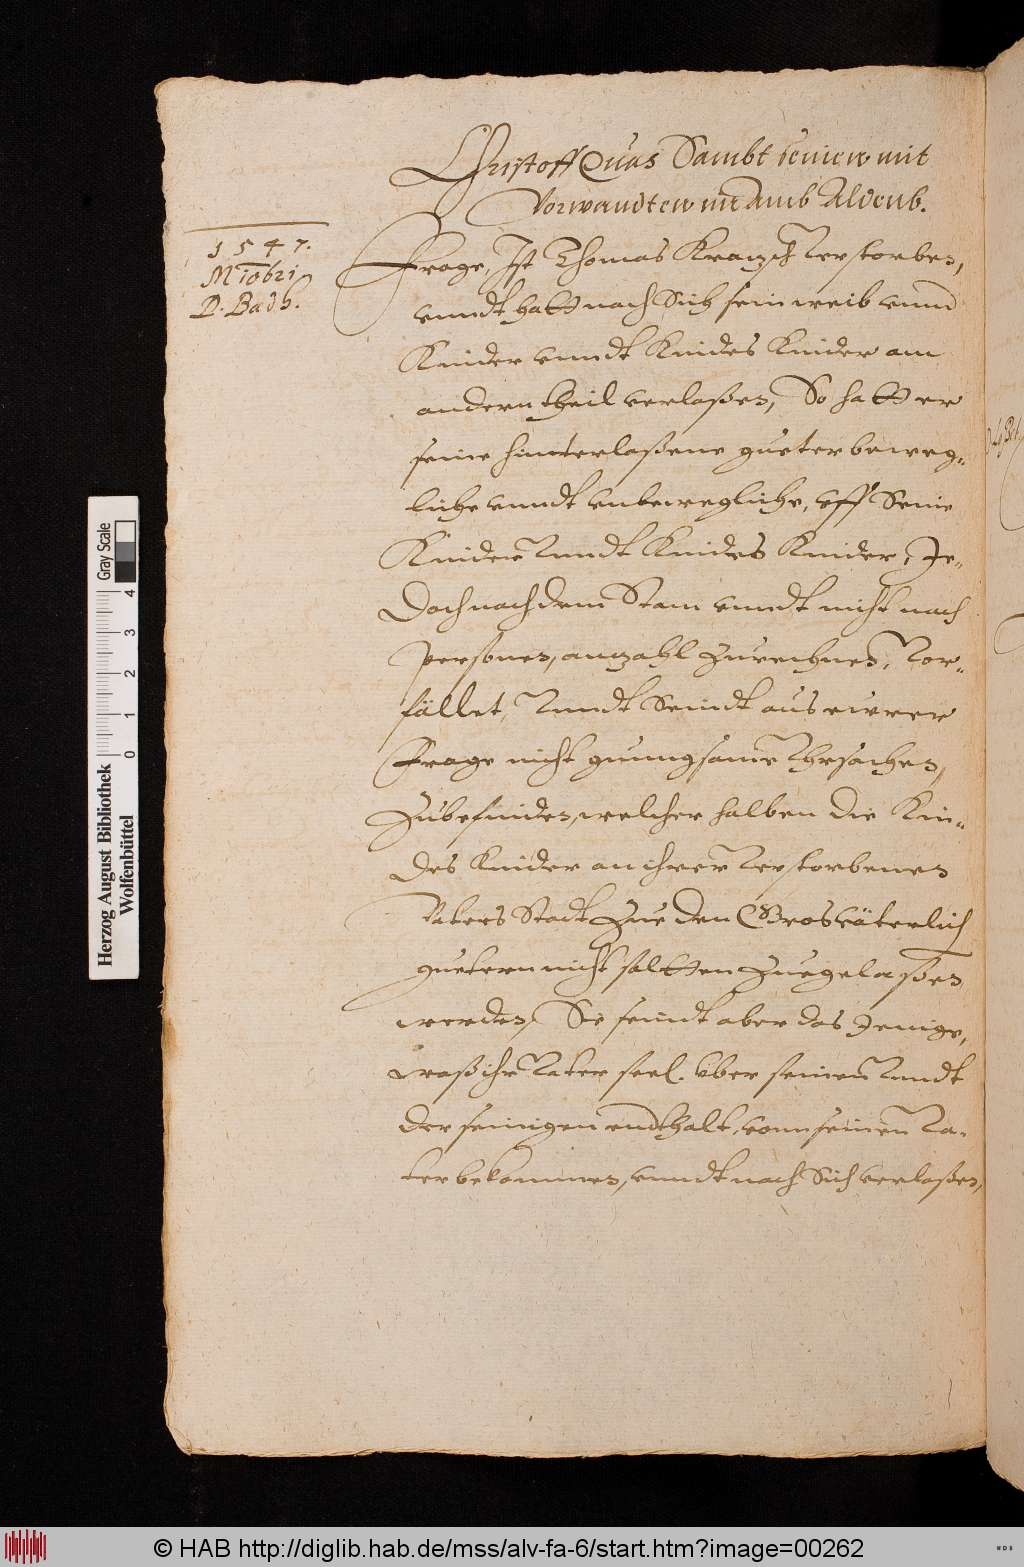 Christoff Quas Sambt seinen mit
Vorwandten im Amb Aldenb.
1547.
M
D. Badh.
Frage, Ist Thomas Kranzsch Verstorben,
vnndt hatt nach Sich sein weib vnnd
Kinder vnndt Kindes Kinder am
andern theil verlaßen, So hatt er
seine hinterlaßene gueter beweg-
liche vnndt vnbewegliche, vff Seine
Kinder Vnndt Kindes Kinder, Je-
doch nach dem Stam vnndt nicht nach
personen, anzahl Zurechnen, Vor-
fället, Vnndt Seindt aus ewrer
Frage nicht gnungsame Vhrsachen,
Zubefinden, welcher halben die Kin-
des Kinder an ihrer Verstorbenen
Vaters Stadt Zue den Grosväterlich
guetern nicht solten Zuegelaßen
werden, Sie seindt aber das Jenige,
Waß ihr Vater seel. vber seinen Vnndt
der seinigen endthalt, vonn seinen Va-
ter bekommen, vnndt nach Sich verlaßen,
Herzog August Bibliothek
Wolfenbüttel
Gray Scale
0 1 2 3 4
© HAB http://diglib.hab.de/mss/alv-fa-6/start.htm?image=00262